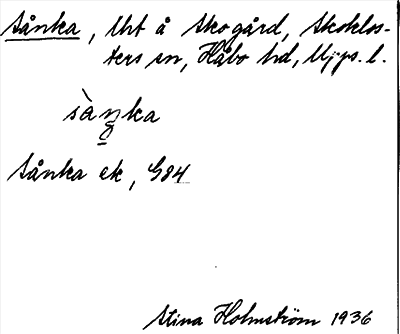 Sånka, Urt å Skogård, Skoklos-
ters sn, Håbo hd, Upps. l.
sàŋka
Sånka ek, G84
Stina Holmström 1936